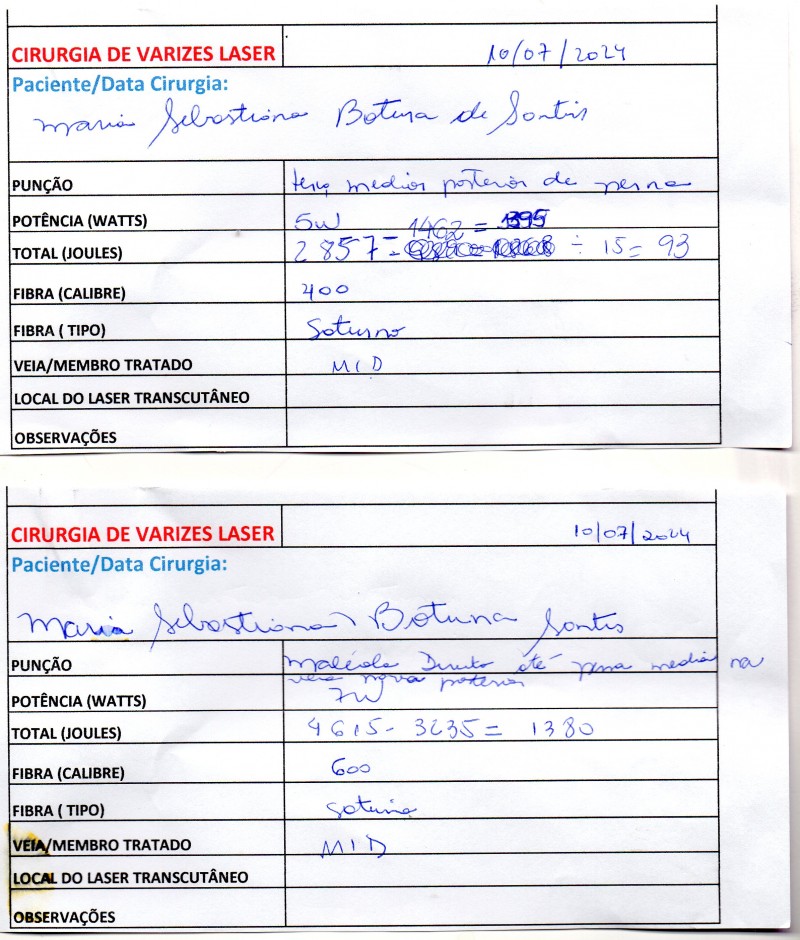 CIRURGIA DE VARIZES LASER 10/07/2024
Paciente/Data Cirurgia:
Maria Sebastiana Botura de Santis
PUNÇÃO terço medios posterior de perna
POTÊNCIA (WATTS) 5W
1462 = 1395
TOTAL (JOULES) 2857 - ÷ 15 = 93
FIBRA (CALIBRE) 400
FIBRA ( TIPO) Soturno
VEIA/MEMBRO TRATADO MID
LOCAL DO LASER TRANSCUTÂNEO
OBSERVAÇÕES
CIRURGIA DE VARIZES LASER 10/07/2024
Paciente/Data Cirurgia:
Maria Sebastiana Botura Santis
PUNÇÃO Maléolo Direito até perna media na
veia posterior
POTÊNCIA (WATTS) 7W
TOTAL (JOULES) 4615 - 3235 = 1380
FIBRA (CALIBRE) 600
FIBRA ( TIPO)
VEIA/MEMBRO TRATADO MID
LOCAL DO LASER TRANSCUTÂNEO
OBSERVAÇÕES